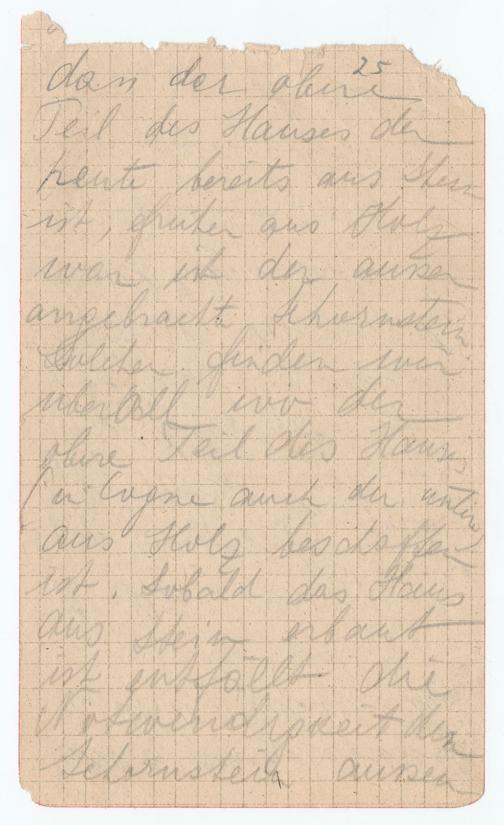 25
dan der obere
Teil des Hauses der
heute bereits aus Stein
ist, früher aus Holz
war ist der aussen
angebracht Schornstein
Solcher finden wir
überall wo der
obere Teil des Hauses
(in Cogne auch der untere)
aus Holz beschaffen
ist. Sobald das Haus
aus Stein erbaut
ist entfällt die
Notwendigkeit den
Schornstein aussen